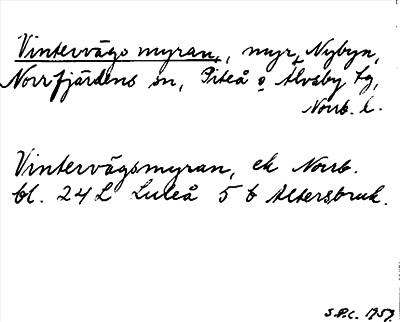 Vintervägsmyran, myr, Nybyn,
Norrfjärdens sn, Piteå o Älvsby tg,
Norrb. l.
Vintervägsmyran, ek Norrb.
bl. 24 L Luleå 5 b Altersbruk.
S.P.C. 1757.